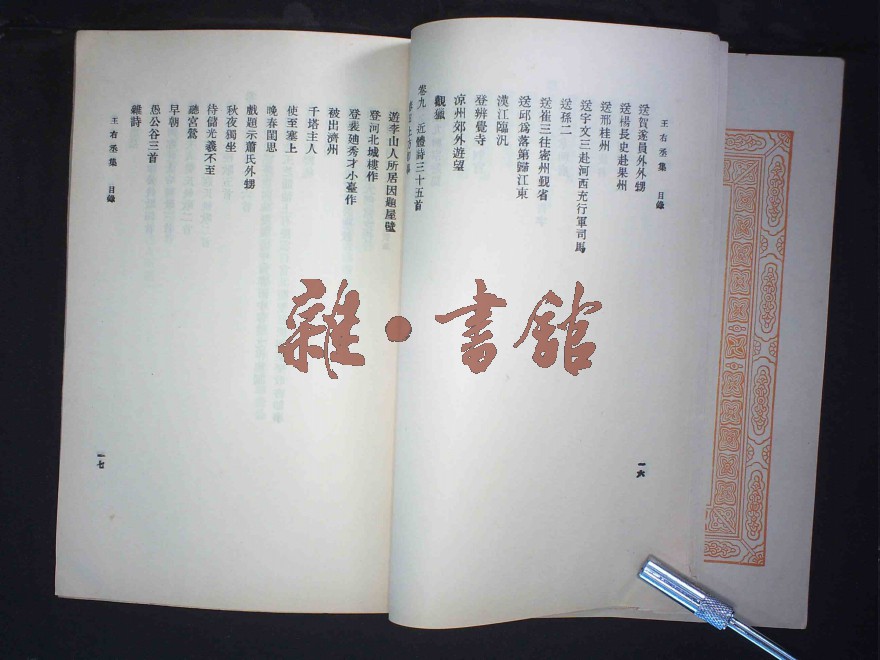 王右丞集 目錄
送賀遂員外外甥
送楊長史赴果州
送邢桂州
送孫二
送宇文三赴河西充行軍司馬
送崔三往密州覲省
送邱為落第歸江東
漢江臨汎
登辨覺寺
涼州郊外遊望
觀獵
卷九 近體詩三十五首
一六
遊李山人所居因題屋壁
登河北城樓作
登裴廸秀才小臺作
被出濟州
千塔主人
使至塞上
晚春閨思
戲題示蕭氏外甥
秋夜獨坐
待儲光羲不至
聽宮鶯
早朝
愚公谷三首
雜詩
王右丞集 目錄
一七
雜·書館